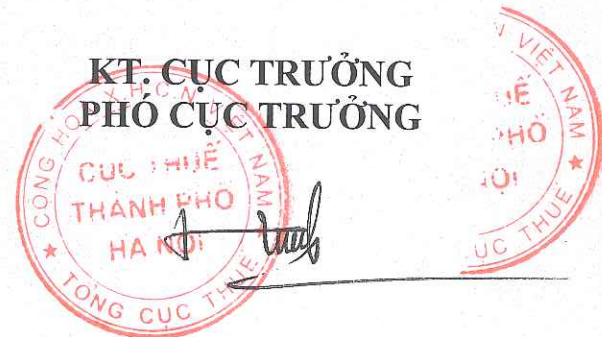 KT. CỤC TRƯỞNG
PHÓ CỤC TRƯỞNG
CỘNG HÒA X.H.C.N VIỆT NAM
CỤC THUẾ
THÀNH PHỐ
HÀ NỘI
★ TỔNG CỤC THUẾ ★
VIỆT NAM ★